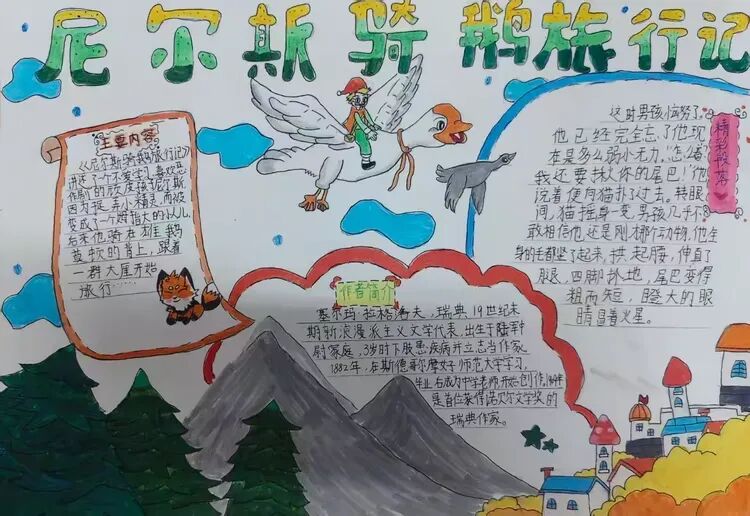 尼尔斯骑鹅旅行记
主要内容
《尼尔斯骑鹅旅行记》
讲述了一个不爱学习、喜欢恶
作剧的顽皮孩子尼尔斯
因为捉弄小精灵,而被
变成了一个拇指大的小人儿,
后来他骑在雄鹅
背上,跟着
一群大雁开始
旅行……
精彩段落
这时男孩恼怒了,
他已经完全忘了他现
在是多么弱小无力,“怎么着?
我还要揪你的尾巴!”他
说着便向猫扑了过去。转眼
间,猫摇身一变,男孩几乎不
敢相信他还是刚才那个动物,他全
身的毛都竖了起来,拱起腰,伸直了
腿,四脚抓地,尾巴变得
粗而短,瞪大的眼
睛冒着火星。
作者简介
塞尔玛·拉格洛夫,瑞典19世纪末
期新浪漫派主义文学代表,出生于陆军中
尉家庭,3岁时下肢患疾病并立志当作家。
1882年,在斯德哥尔摩女子师范大学学习,
毕业后成为中学老师,开始创作,1909年
是首位获得诺贝尔文学奖的
瑞典作家。